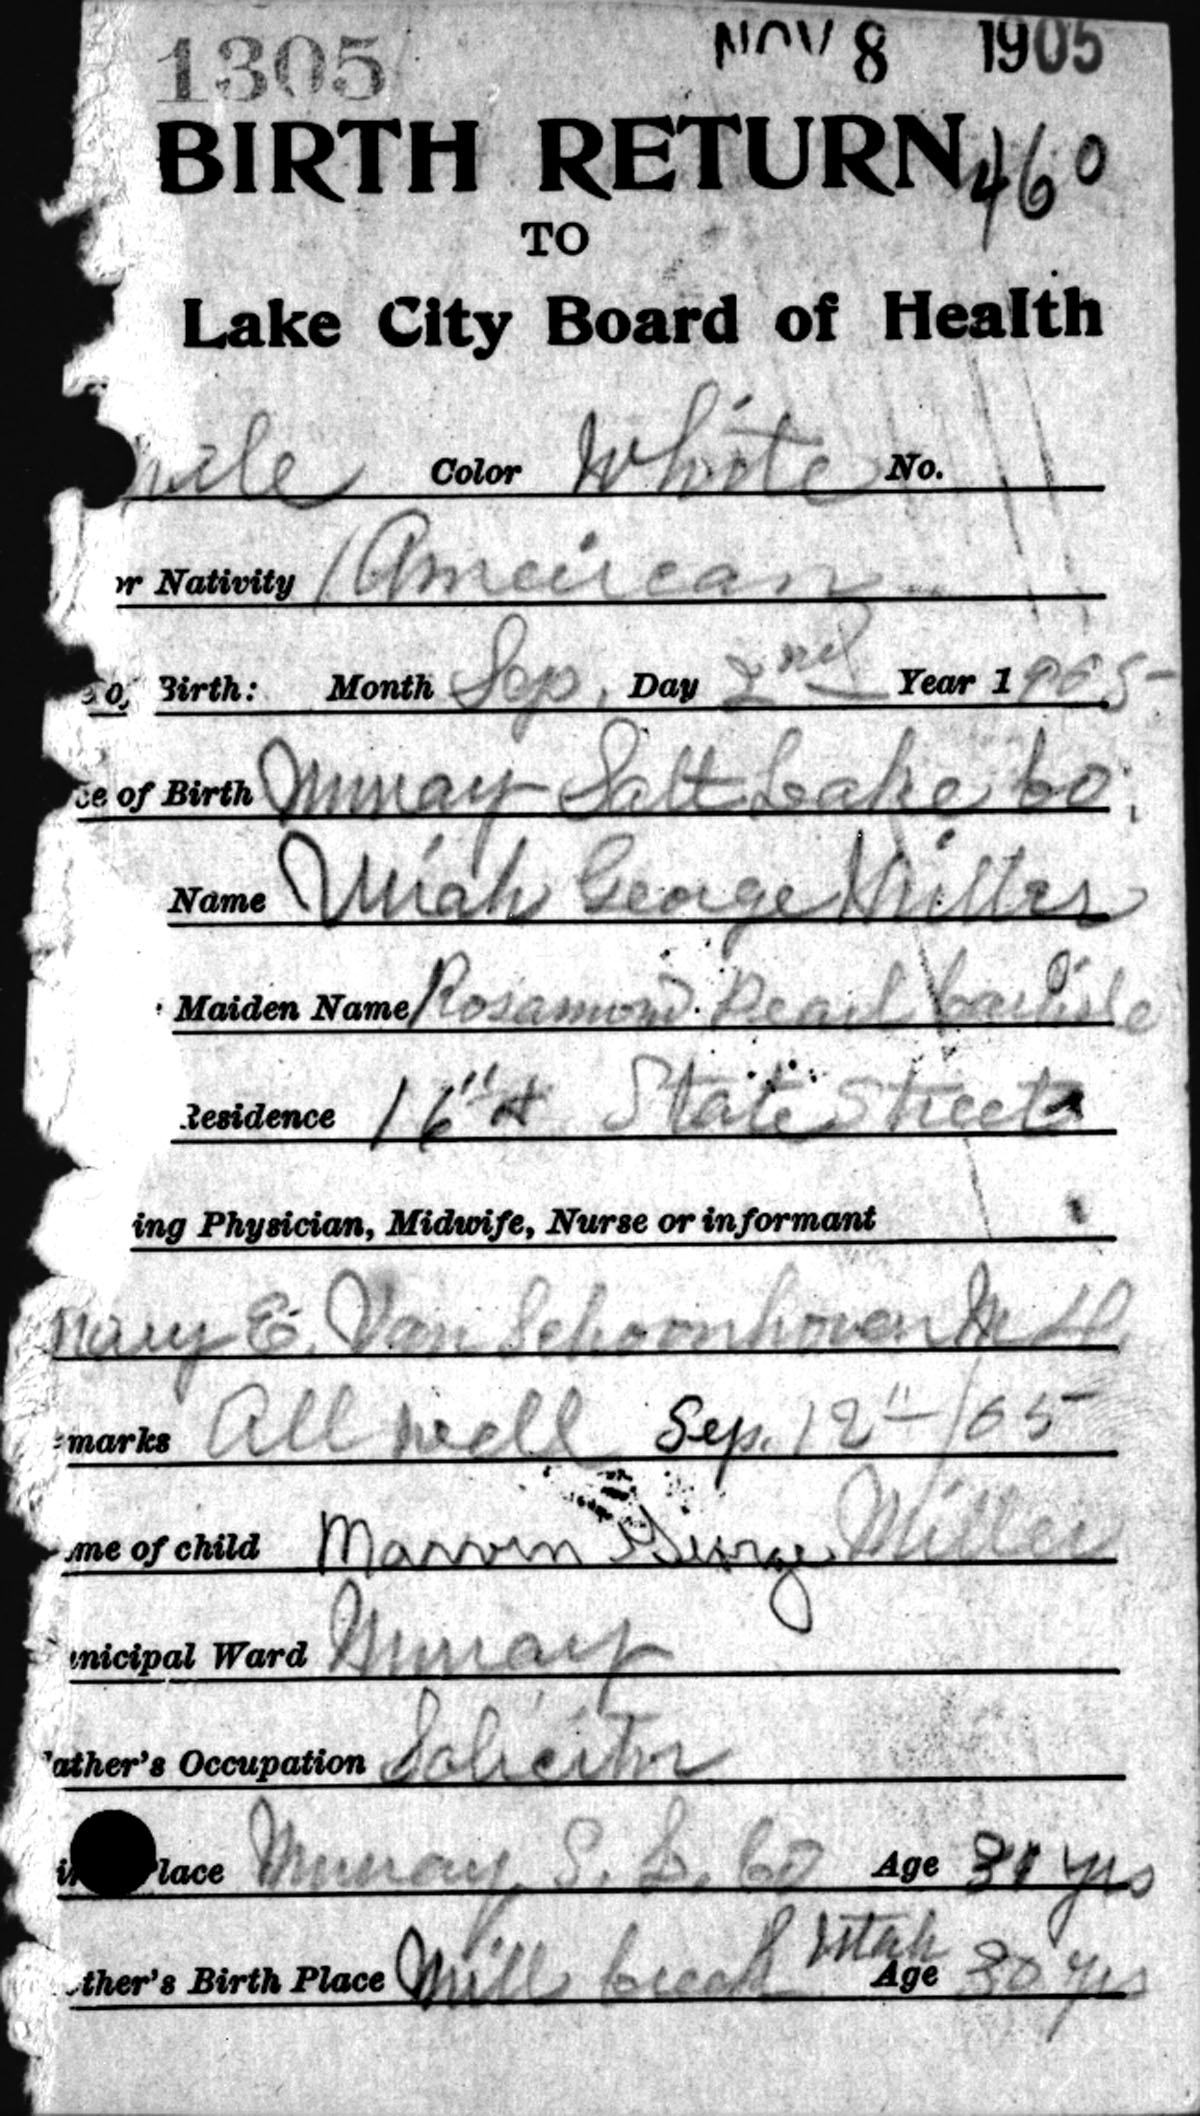 1305 NOV 8 1905
BIRTH RETURN 460
TO
Lake City Board of Health
Color White No.
r Nativity American
Birth: Month Sep. Day 2nd Year 1905
ce of Birth Murray Salt Lake Co.
Name Uriah George Miller
Maiden Name Rosamond Pearl Carlisle
Residence 16th & State Street
ing Physician, Midwife, Nurse or informant
Mary E. Van Schoonhoven M.D.
marks All well Sep. 12th/05
me of child Marvin George Miller
unicipal Ward Murray
ather's Occupation Solicitor
lace Murray S. L. Co Age 31 yrs
Utah
ther's Birth Place Mill Creek Age 30 yrs